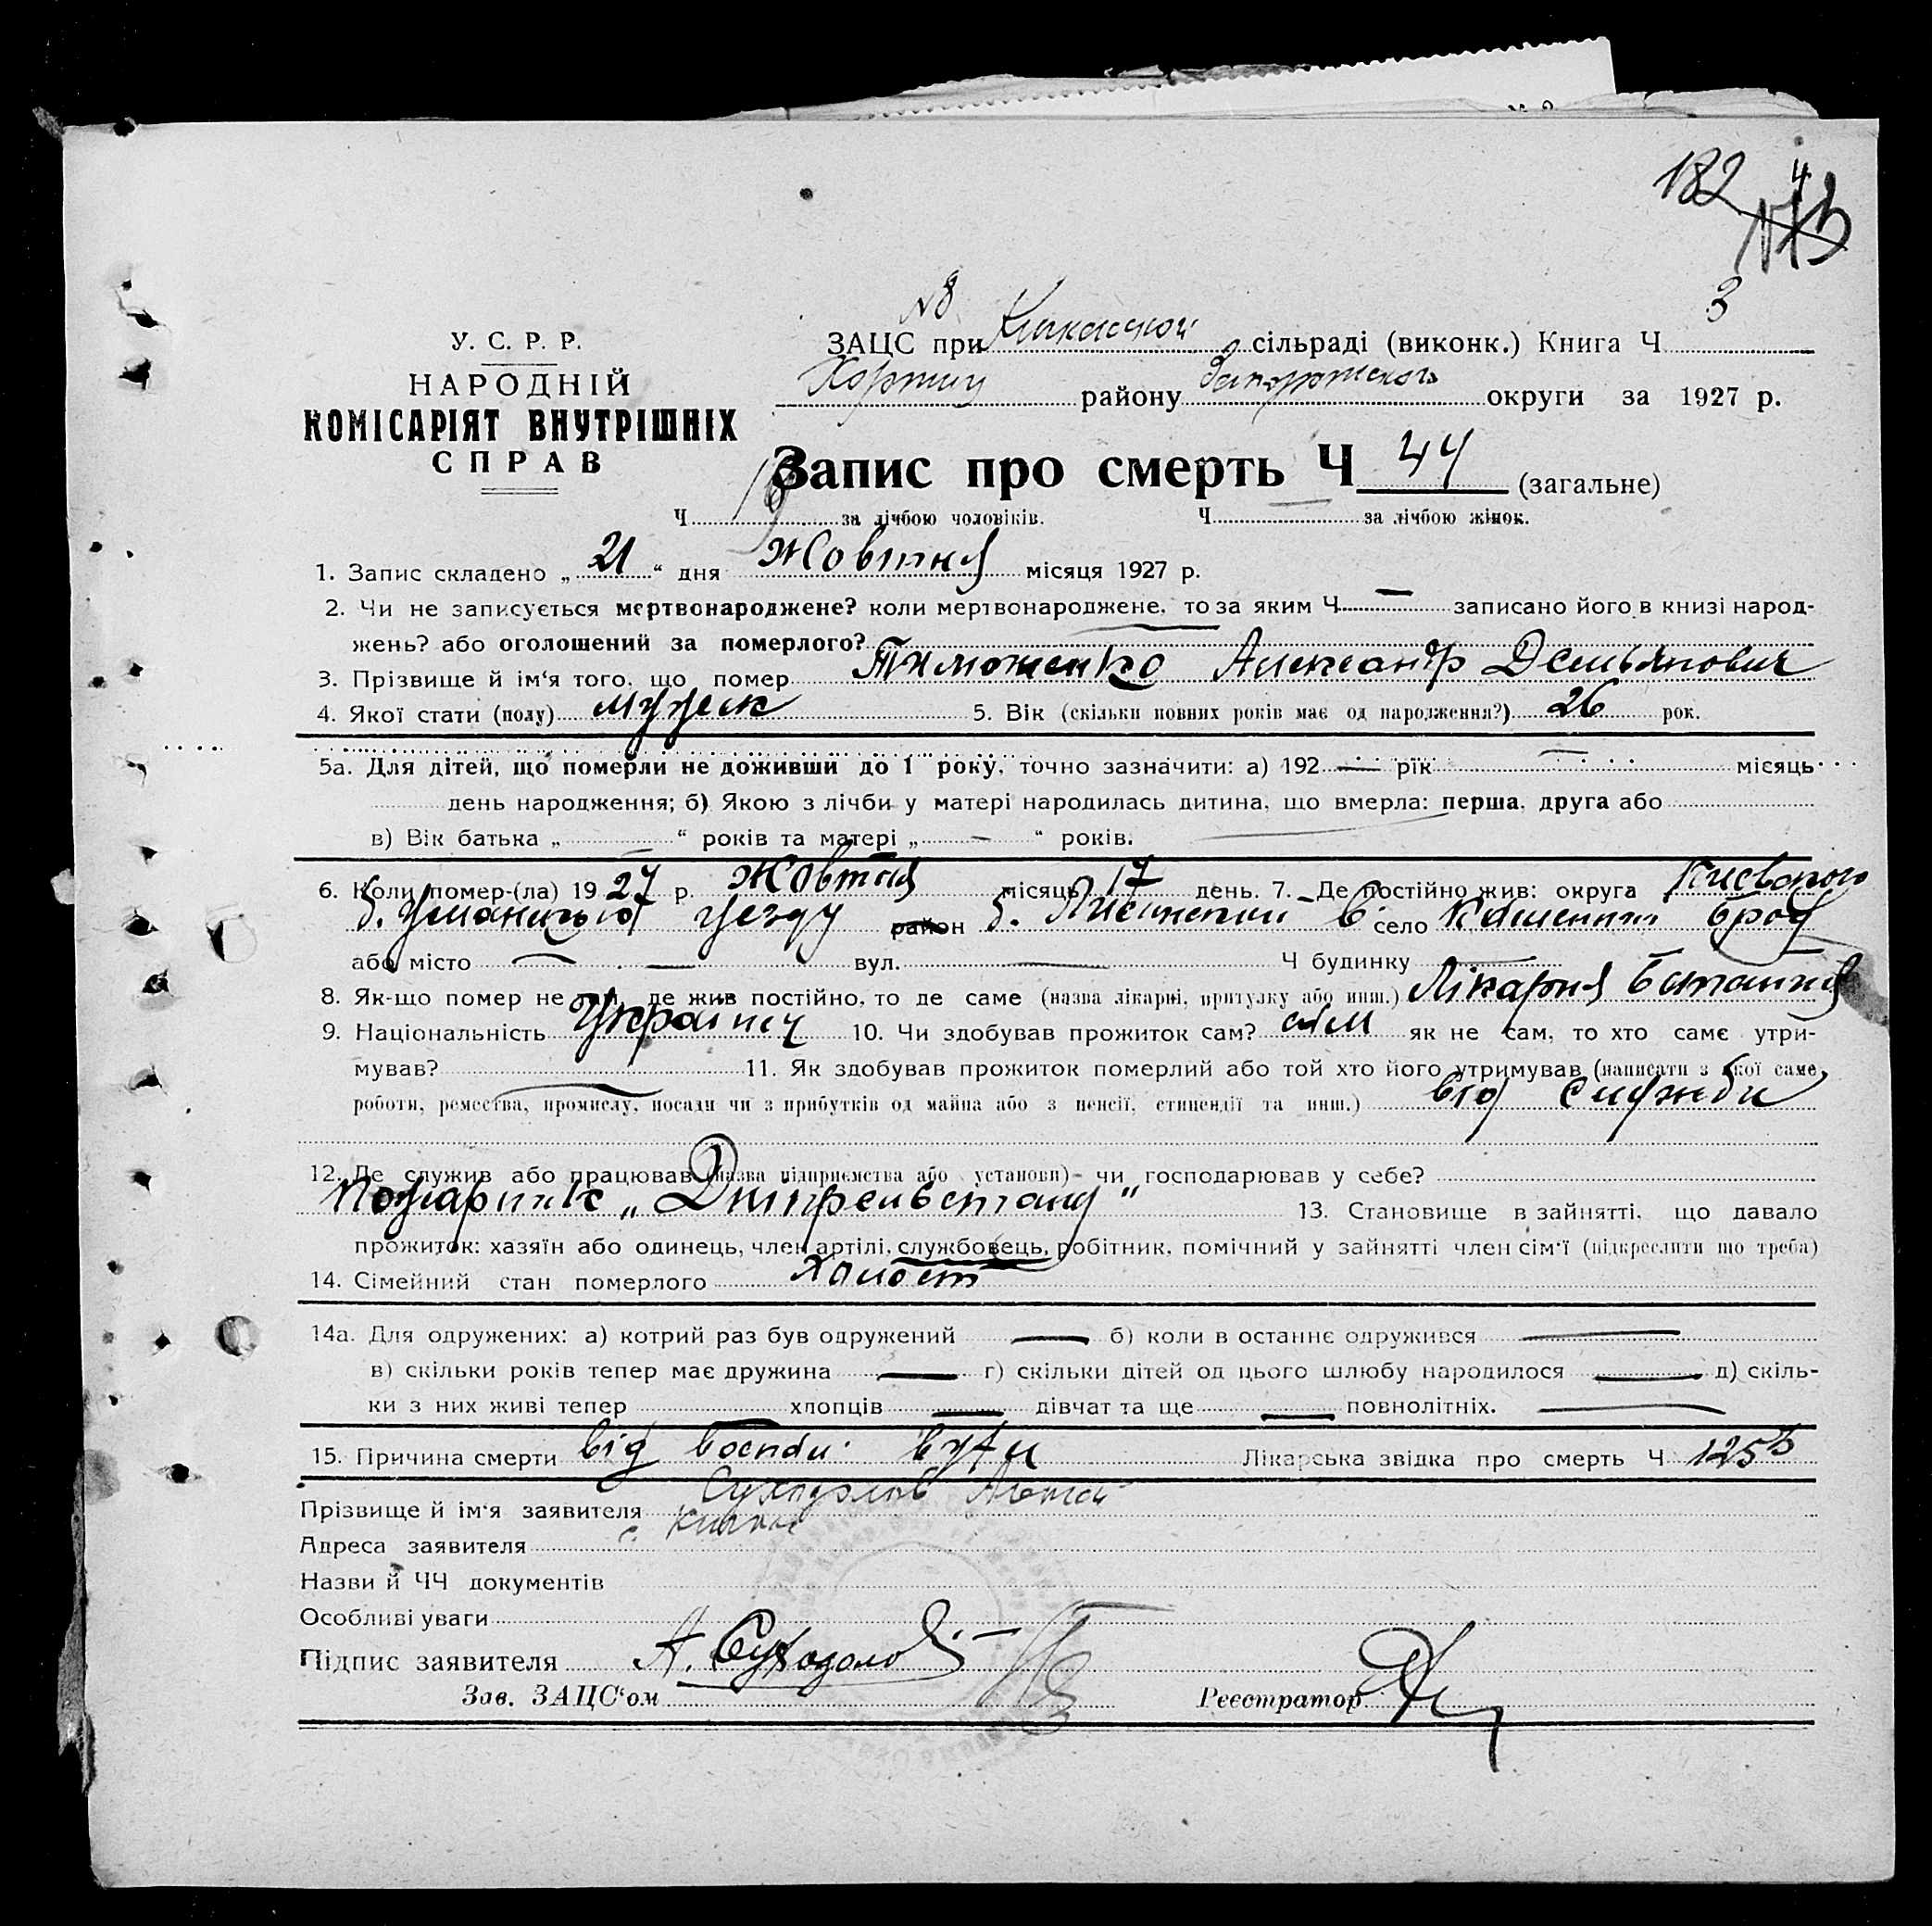 182 4
У. С. Р. Р.
НАРОДНІЙ
КОМІСАРІЯТ ВНУТРІШНІХ
СПРАВ
ЗАЦС при сільраді (виконк.) Книга Ч 3
Хортиц району Запорожского округи за 1927 р.
Запис про смерть Ч 44 (загальне)
Ч за лічбою чоловіків. Ч — за лічбою жінок.
1. Запис складено „ 21 “ дня Жовтня місяця 1927 р.
2. Чи не записується мертвонароджене? коли мертвонароджене, то за яким Ч — записано його в книзі народ-
жень? або оголошений за померлого?
3. Прізвище й ім‘я того, що помер Тимошенко Александр Демьянович
4. Якої стати (полу) мужеск 5. Вік (скільки повних років має од народження?) 26 рок.
5а. Для дітей, що померли не доживши до 1 року, точно зазначити: а) 192 — рік — місяць
день народження; б) Якою з лічби у матері народилась дитина, що вмерла: перша, друга або
в) Вік батька „ — “ років та матері „ — “ років.
6. Коли помер-(ла) 19 27 р. Жовтня місяць 17 день. 7. Де постійно жив: округа Киевского
б. уезду район б. село Брод
або місто — — вул. — Ч будинку —
8. Як-що помер не там, де жив постійно, то де саме (назва лікарні, притулку або инш.) Лікарня
9. Національність Украінец 10. Чи здобував прожиток сам? сам як не сам, то хто саме утри-
мував? 11. Як здобував прожиток померлий або той хто його утримував (написати з якої саме
роботи, ремества, промислу, посади чи з прибутків од майна або з пенсії, стипендії та инш.) від служби
12. Де служив або працював (назва підприємства або установи) чи господарював у себе?
пожарник „Дніпрельстану“ 13. Становище в зайнятті, що давало
прожиток: хазяїн або одинець, член артілі, службовець, робітник, помічний у зайнятті член сім‘ї (підкреслити що треба)
14. Сімейний стан померлого Холост
14а. Для одружених: а) котрий раз був одружений — б) коли в останнє одружився —
в) скільки років тепер має дружина — г) скільки дітей од цього шлюбу народилося — д) скіль-
ки з них живі тепер — хлопців — дівчат та ще — повнолітніх. —
15. Причина смерти від Лікарська звідка про смерть Ч
Прізвище й ім‘я заявителя Суходолов
Адреса заявителя с. Кичкас
Назви й ЧЧ документів
Особливі уваги
Підпис заявителя А. Суходолов
Зав. ЗАЦС‘ом Реєстратор